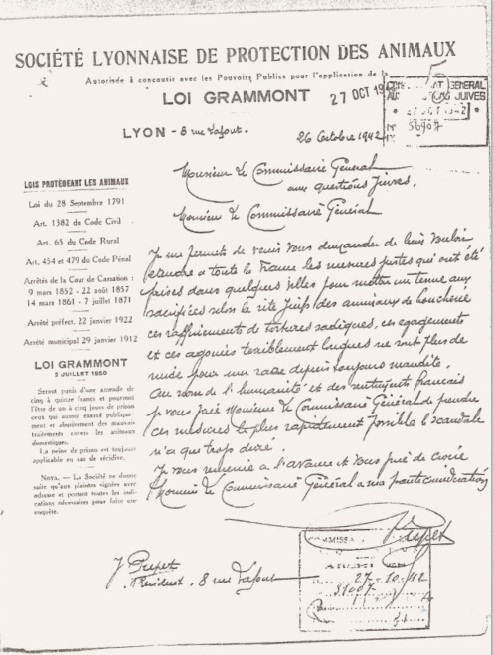 SOCIÉTÉ LYONNAISE DE PROTECTION DES ANIMAUX
Autorisée à concourir avec les Pouvoirs Publics pour l'application de la
LOI GRAMMONT
27 OCT 19
GENERAL
JUIVES
LYON - 8 rue Lafont.
26 Octobre 1942
Monsieur le Commissaire Général
aux questions Juives.
Monsieur le Commissaire Général
LOIS PROTÉGEANT LES ANIMAUX
Loi du 28 Septembre 1791
Art. 1382 du Code Civil
Art. 65 du Code Rural
Art. 454 et 479 du Code Pénal
Arrêtés de la Cour de Cassation :
9 mars 1852 - 22 août 1857
14 mars 1861 - 7 juillet 1871
Arrêté préfect. 22 janvier 1922
Arrêté municipal 29 janvier 1912
LOI GRAMMONT
2 JUILLET 1850
Seront punis d'une amende de
cinq à quinze francs et pourront
l'être de un à cinq jours de prison
ceux qui auront exercé publique-
ment et abusivement des mauvais
traitements envers les animaux
domestiques.
La peine de prison est toujours
applicable en cas de récidive.
NOTA. — La Société ne donne
suite qu'aux plaintes signées avec
adresse et portant toutes les indi-
cations nécessaires pour faire une
enquête.
Je me permets de venir vous demander de bien vouloir
étendre à toute la France les mesures justes qui ont été
prises dans quelques villes pour mettre un terme aux
sacrifices selon le rite Juifs des animaux de boucherie
ces raffinements de tortures sadiques, ces égorgements
et ces agonies terriblement longues ne sont plus de
mise pour une race depuis toujours maudite.
Au nom de l'humanité et des sentiments français
je vous prie Monsieur le Commissaire Général de prendre
ces mesures le plus rapidement possible le scandale
n'a que trop duré.
Je vous remercie à l'avance et vous prie de croire
Monsieur le Commissaire Général à ma haute considération
COMMISSA
27-10-42
J Prepet
Président, 8 rue Lafont